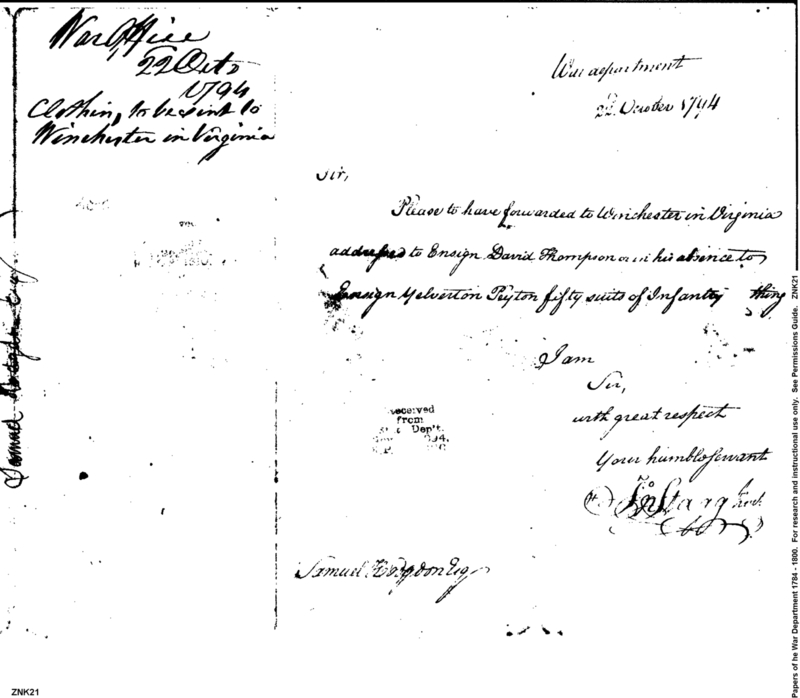 War Office
22 Octo
1794
Clothing, to be sent to
Winchester in Virginia
War department
22 October 1794
Sir,
Please to have forwarded to Winchester in Virginia
addressed to Ensign David Thompson or in his absence to
Ensign Yelverton Peyton fifty suits of Infantry thing
I am
Sir,
with great respect
Your humble Servant
Jno Stagg
Samuel Hodgdon Esq
Received
from
Dep't.
Samuel Hodgdon Esq
Papers of he War Department 1784 -1800. For research and instructional use only. See Permissions Guide. ZNK21
ZNK21